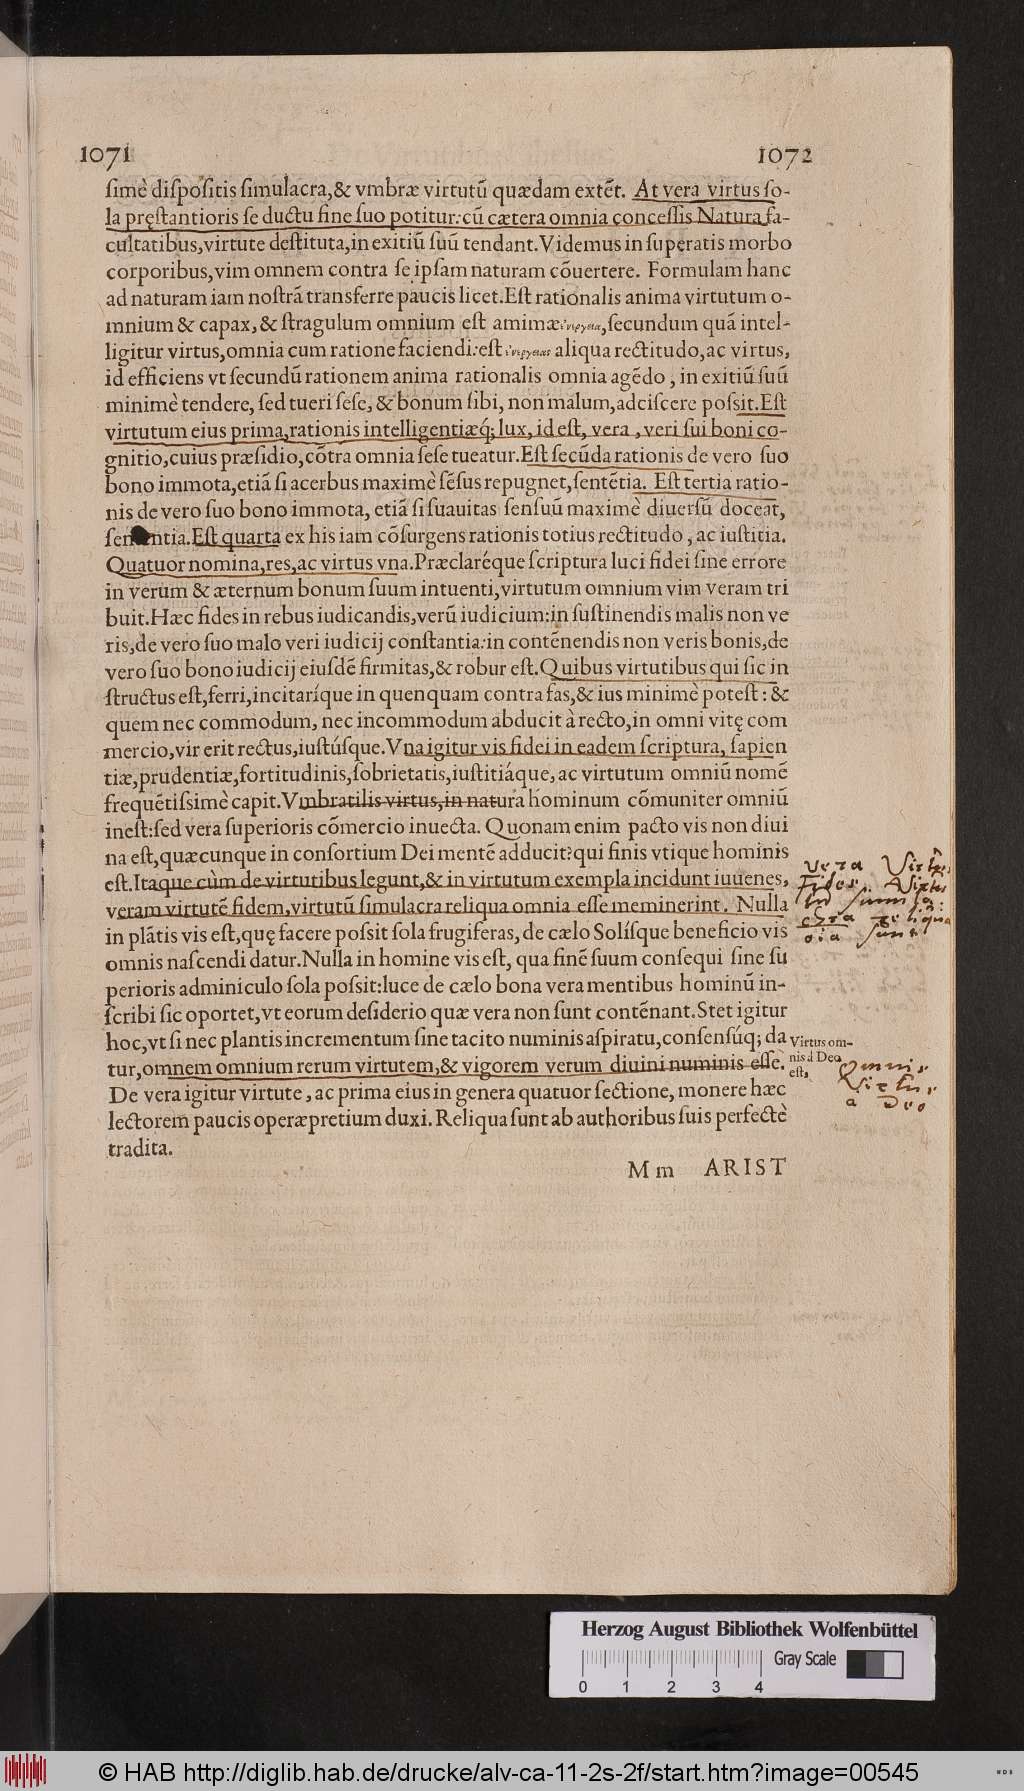 1071 1072
simè dispositis simulacra,& vmbræ virtutũ quædam extẽt. At vera virtus so-
la pręstantioris se ductu fine suo potitur:cũ cætera omnia concessis Natura fa-
cultatibus,virtute destituta,in exitiũ suũ tendant.Videmus in superatis morbo
corporibus,vim omnem contra se ipsam naturam cõuertere. Formulam hanc
ad naturam iam nostrã transferre paucis licet.Est rationalis anima virtutum o-
mnium & capax,& stragulum omnium est amimæ ἐνεργεια,secundum quã intel-
ligitur virtus,omnia cum ratione faciendi:est ἐνεργειας aliqua rectitudo,ac virtus,
id efficiens vt secundũ rationem anima rationalis omnia agẽdo, in exitiũ suũ
minimè tendere, sed tueri sese,& bonum sibi, non malum,adciscere possit.Est
virtutum eius prima,rationis intelligentiæq́; lux, id est, vera, veri sui boni co-
gnitio,cuius præsidio,cõtra omnia sese tueatur.Est secũda rationis de vero suo
bono immota,etiã si acerbus maximè sẽsus repugnet,sentẽtia. Est tertia ratio-
nis de vero suo bono immota, etiã si suauitas sensuũ maximè diuersũ doceat,
sententia.Est quarta ex his iam cõsurgens rationis totius rectitudo, ac iustitia.
Quatuor nomina,res,ac virtus vna.Præclaréque scriptura luci fidei sine errore
in verum & æternum bonum suum intuenti,virtutum omnium vim veram tri
buit.Hæc fides in rebus iudicandis,verũ iudicium:in sustinendis malis non ve
ris,de vero suo malo veri iudicij constantia:in contẽnendis non veris bonis,de
vero suo bono iudicij eiusdẽ firmitas,& robur est.Quibus virtutibus qui sic in
structus est,ferri,incitaríque in quenquam contra fas,& ius minimè potest: &
quem nec commodum, nec incommodum abducit à recto,in omni vitę com
mercio,vir erit rectus,iustúsque.Vna igitur vis fidei in eadem scriptura, sapien
tiæ,prudentiæ,fortitudinis,sobrietatis,iustitiáque, ac virtutum omniũ nomẽ
frequẽtissimè capit.Vmbratilis virtus,in natura hominum cõmuniter omniũ
inest:sed vera superioris cõmercio inuecta. Quonam enim pacto vis non diui
na est,quæcunque in consortium Dei mentẽ adducit?qui finis vtique hominis
est.Itaque cùm de virtutibus legunt,& in virtutum exempla incidunt iuuenes,
veram virtutẽ fidem,virtutũ simulacra reliqua omnia esse meminerint. Nulla
in plãtis vis est,quę facere possit sola frugiferas, de cælo Solísque beneficio vis
omnis nascendi datur.Nulla in homine vis est, qua finẽ suum consequi sine su
perioris adminiculo sola possit:luce de cælo bona vera mentibus hominũ in-
scribi sic oportet,vt eorum desiderio quæ vera non sunt contẽnant.Stet igitur
hoc,vt si nec plantis incrementum sine tacito numinis aspiratu,consensúq; da
tur,omnem omnium rerum virtutem,& vigorem verum diuini numinis esse.
De vera igitur virtute, ac prima eius in genera quatuor sectione, monere hæc
lectorem paucis operæpretium duxi.Reliqua sunt ab authoribus suis perfectè
tradita.
Mm ARIST
Vera
Fides
reliqua
oia sunt
Virtus om-
nis à Deo
est,
Omnis
Virtus
a Deo
Herzog August Bibliothek Wolfenbüttel
Gray Scale
0 1 2 3 4
© HAB http://diglib.hab.de/drucke/alv-ca-11-2s-2f/start.htm?image=00545